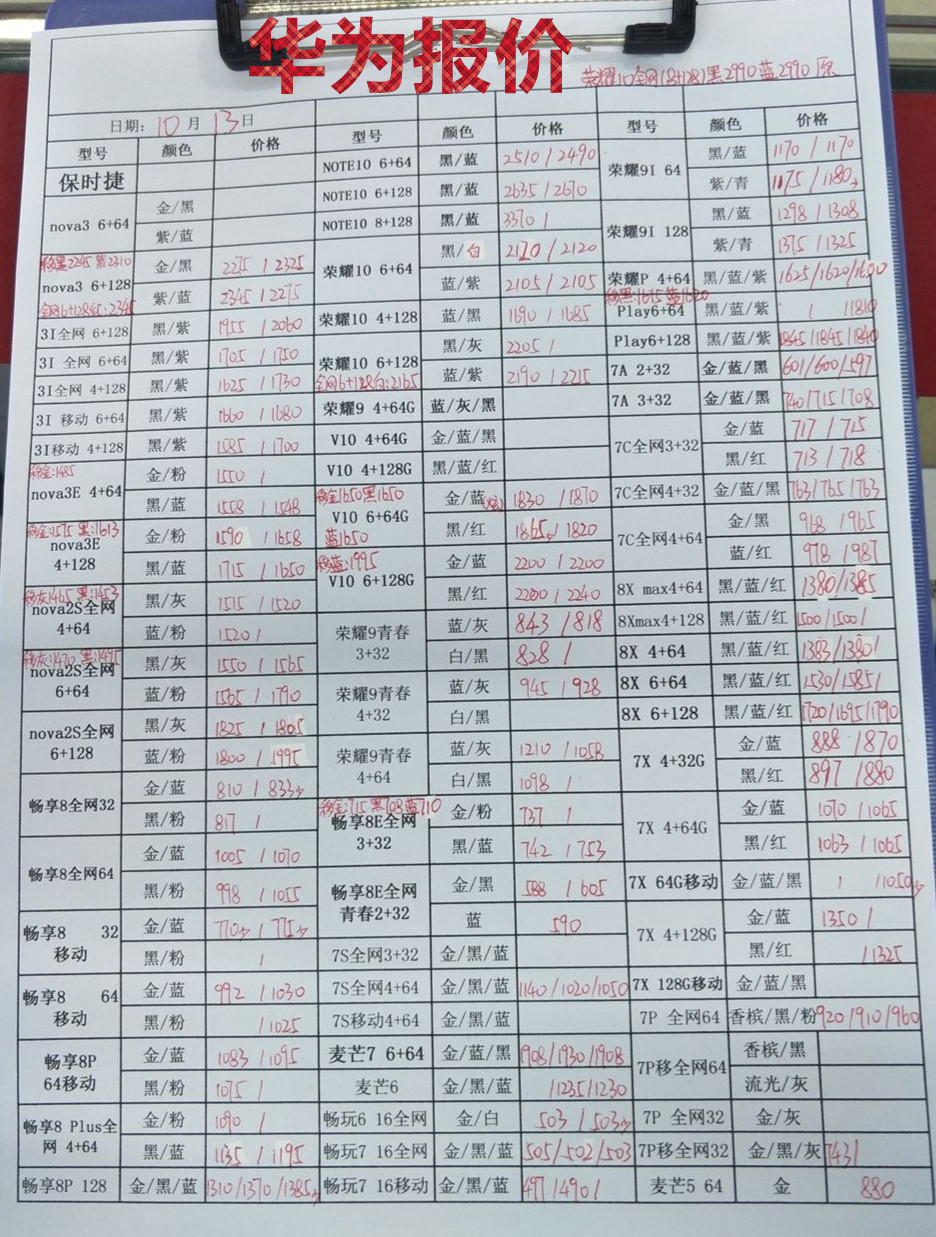 华为报价
荣耀10全网(8+128)黑2990蓝2990原
日期: 10月13日
型号 颜色 价格
保时捷
nova3 6+64 金/黑
紫/蓝
移黑2245 紫2310
nova3 6+128 金/黑 2275 / 2325
紫/蓝 2345 / 2275
3I全网 6+128 黑/紫 1955 / 2060
3I 全网 6+64 黑/紫 1705 / 1750
3I全网 4+128 黑/紫 1625 / 1730
3I 移动 6+64 黑/紫 1600 / 1680
3I移动 4+128 黑/紫 1585 / 1700
移金:1485
nova3E 4+64 金/粉 1550 /
黑/蓝 1558 / 1548
移金:1575 黑:1613
nova3E 4+128 金/粉 1590 / 1658
黑/蓝 1715 / 1650
移灰1465 黑:1453
nova2S全网 4+64 黑/灰 1515 / 1520
蓝/粉 1520 /
移灰:1470 黑:1475
nova2S全网 6+64 黑/灰 1550 / 1565
蓝/粉 1565 / 1790
nova2S全网 6+128 黑/灰 1825 / 1805
蓝/粉 1800 / 1995
畅享8全网32 金/蓝 810 / 833少
黑/粉 817 /
畅享8全网64 金/蓝 1005 / 1070
黑/粉 998 / 1055
畅享8 32移动 金/蓝 770少 / 775少
黑/粉 /
畅享8 64移动 金/蓝 992 / 1030
黑/粉 / 1025
畅享8P 64移动 金/蓝 1083 / 1095
黑/粉 1075 /
畅享8 Plus全网 4+64 金/粉 1090 /
黑/蓝 1135 / 1195
畅享8P 128 金/黑/蓝 1310/1370/1385少
型号 颜色 价格
NOTE10 6+64 黑/蓝 2510 / 2490
NOTE10 6+128 黑/蓝 2635 / 2670
NOTE10 8+128 黑/蓝 3370 /
荣耀10 6+64 黑/白 2170 / 2120
蓝/紫 2105 / 2105
荣耀10 4+128 蓝/黑 1690 / 1685
荣耀10 6+128 黑/灰 2205 /
蓝/紫 2190 / 2215
荣耀9 4+64G 蓝/灰/黑
V10 4+64G 金/蓝/黑
V10 4+128G 黑/蓝/红
移金1650黑1650
V10 6+64G 金/蓝 1830 / 1870
蓝1650
黑/红 1865少 / 1820
移蓝:1995
V10 6+128G 金/蓝 2200 / 2200
黑/红 2200 / 2240
荣耀9青春 3+32 蓝/灰 843 / 818
白/黑 828 /
荣耀9青春 4+32 蓝/灰 945 / 928
白/黑
荣耀9青春 4+64 蓝/灰 1210 / 1058
白/黑 1098 /
移金:715 黑708蓝710
畅享8E全网 3+32 金/粉 737 /
黑/蓝 742 / 753
畅享8E全网青春2+32 金/黑 588 / 605
蓝 590
7S全网3+32 金/黑/蓝
7S全网4+64 金/黑/蓝 1140 / 1020/1050
7S移动4+64 金/黑/蓝
麦芒7 6+64 金/蓝/黑 1908/1930/1908
麦芒6 金/黑/蓝 /1235/1230
畅玩6 16全网 金/白 503 / 503少
畅玩7 16全网 金/黑/蓝 505/502/503
畅玩7 16移动 金/黑/蓝 497/490/
型号 颜色 价格
荣耀9I 64 黑/蓝 1170 / 1170
紫/青 1175 / 1180少
荣耀9I 128 黑/蓝 1298 / 1308
紫/青 1375 / 1325
荣耀P 4+64 黑/蓝/紫 1625/1620/1600
移黑:1615 蓝1620
Play6+64 黑/蓝/紫 / /1810
Play6+128 黑/蓝/紫 1845/1845/1840
7A 2+32 金/蓝/黑 601/600/597
7A 3+32 金/蓝/黑 740/715/708
7C全网3+32 金/蓝 717 / 715
黑/红 713 / 718
7C全网4+32 金/蓝/黑 763/765/763
7C全网4+64 金/黑 968 / 965
蓝/红 978 / 987
8X max4+64 黑/蓝/红 1380/1385
8Xmax4+128 黑/蓝/红 1500/1500/
8X 4+64 黑/蓝/红 1383/1380/
8X 6+64 黑/蓝/红 1530/1585/
8X 6+128 黑/蓝/红 1720/1695/1790
7X 4+32G 金/蓝 888 / 870
黑/红 897 / 880
7X 4+64G 金/蓝 1070 / 1065
黑/红 1063 / 1065
7X 64G移动 金/蓝/黑 / /1050少
7X 4+128G 金/蓝 1350 /
黑/红 / 1325
7X 128G移动 金/蓝/黑
7P 全网64 香槟/黑/粉 920/910/960
7P移全网64 香槟/黑
流光/灰
7P 全网32 金/灰
7P移全网32 金/黑/灰 743/
麦芒5 64 金 880